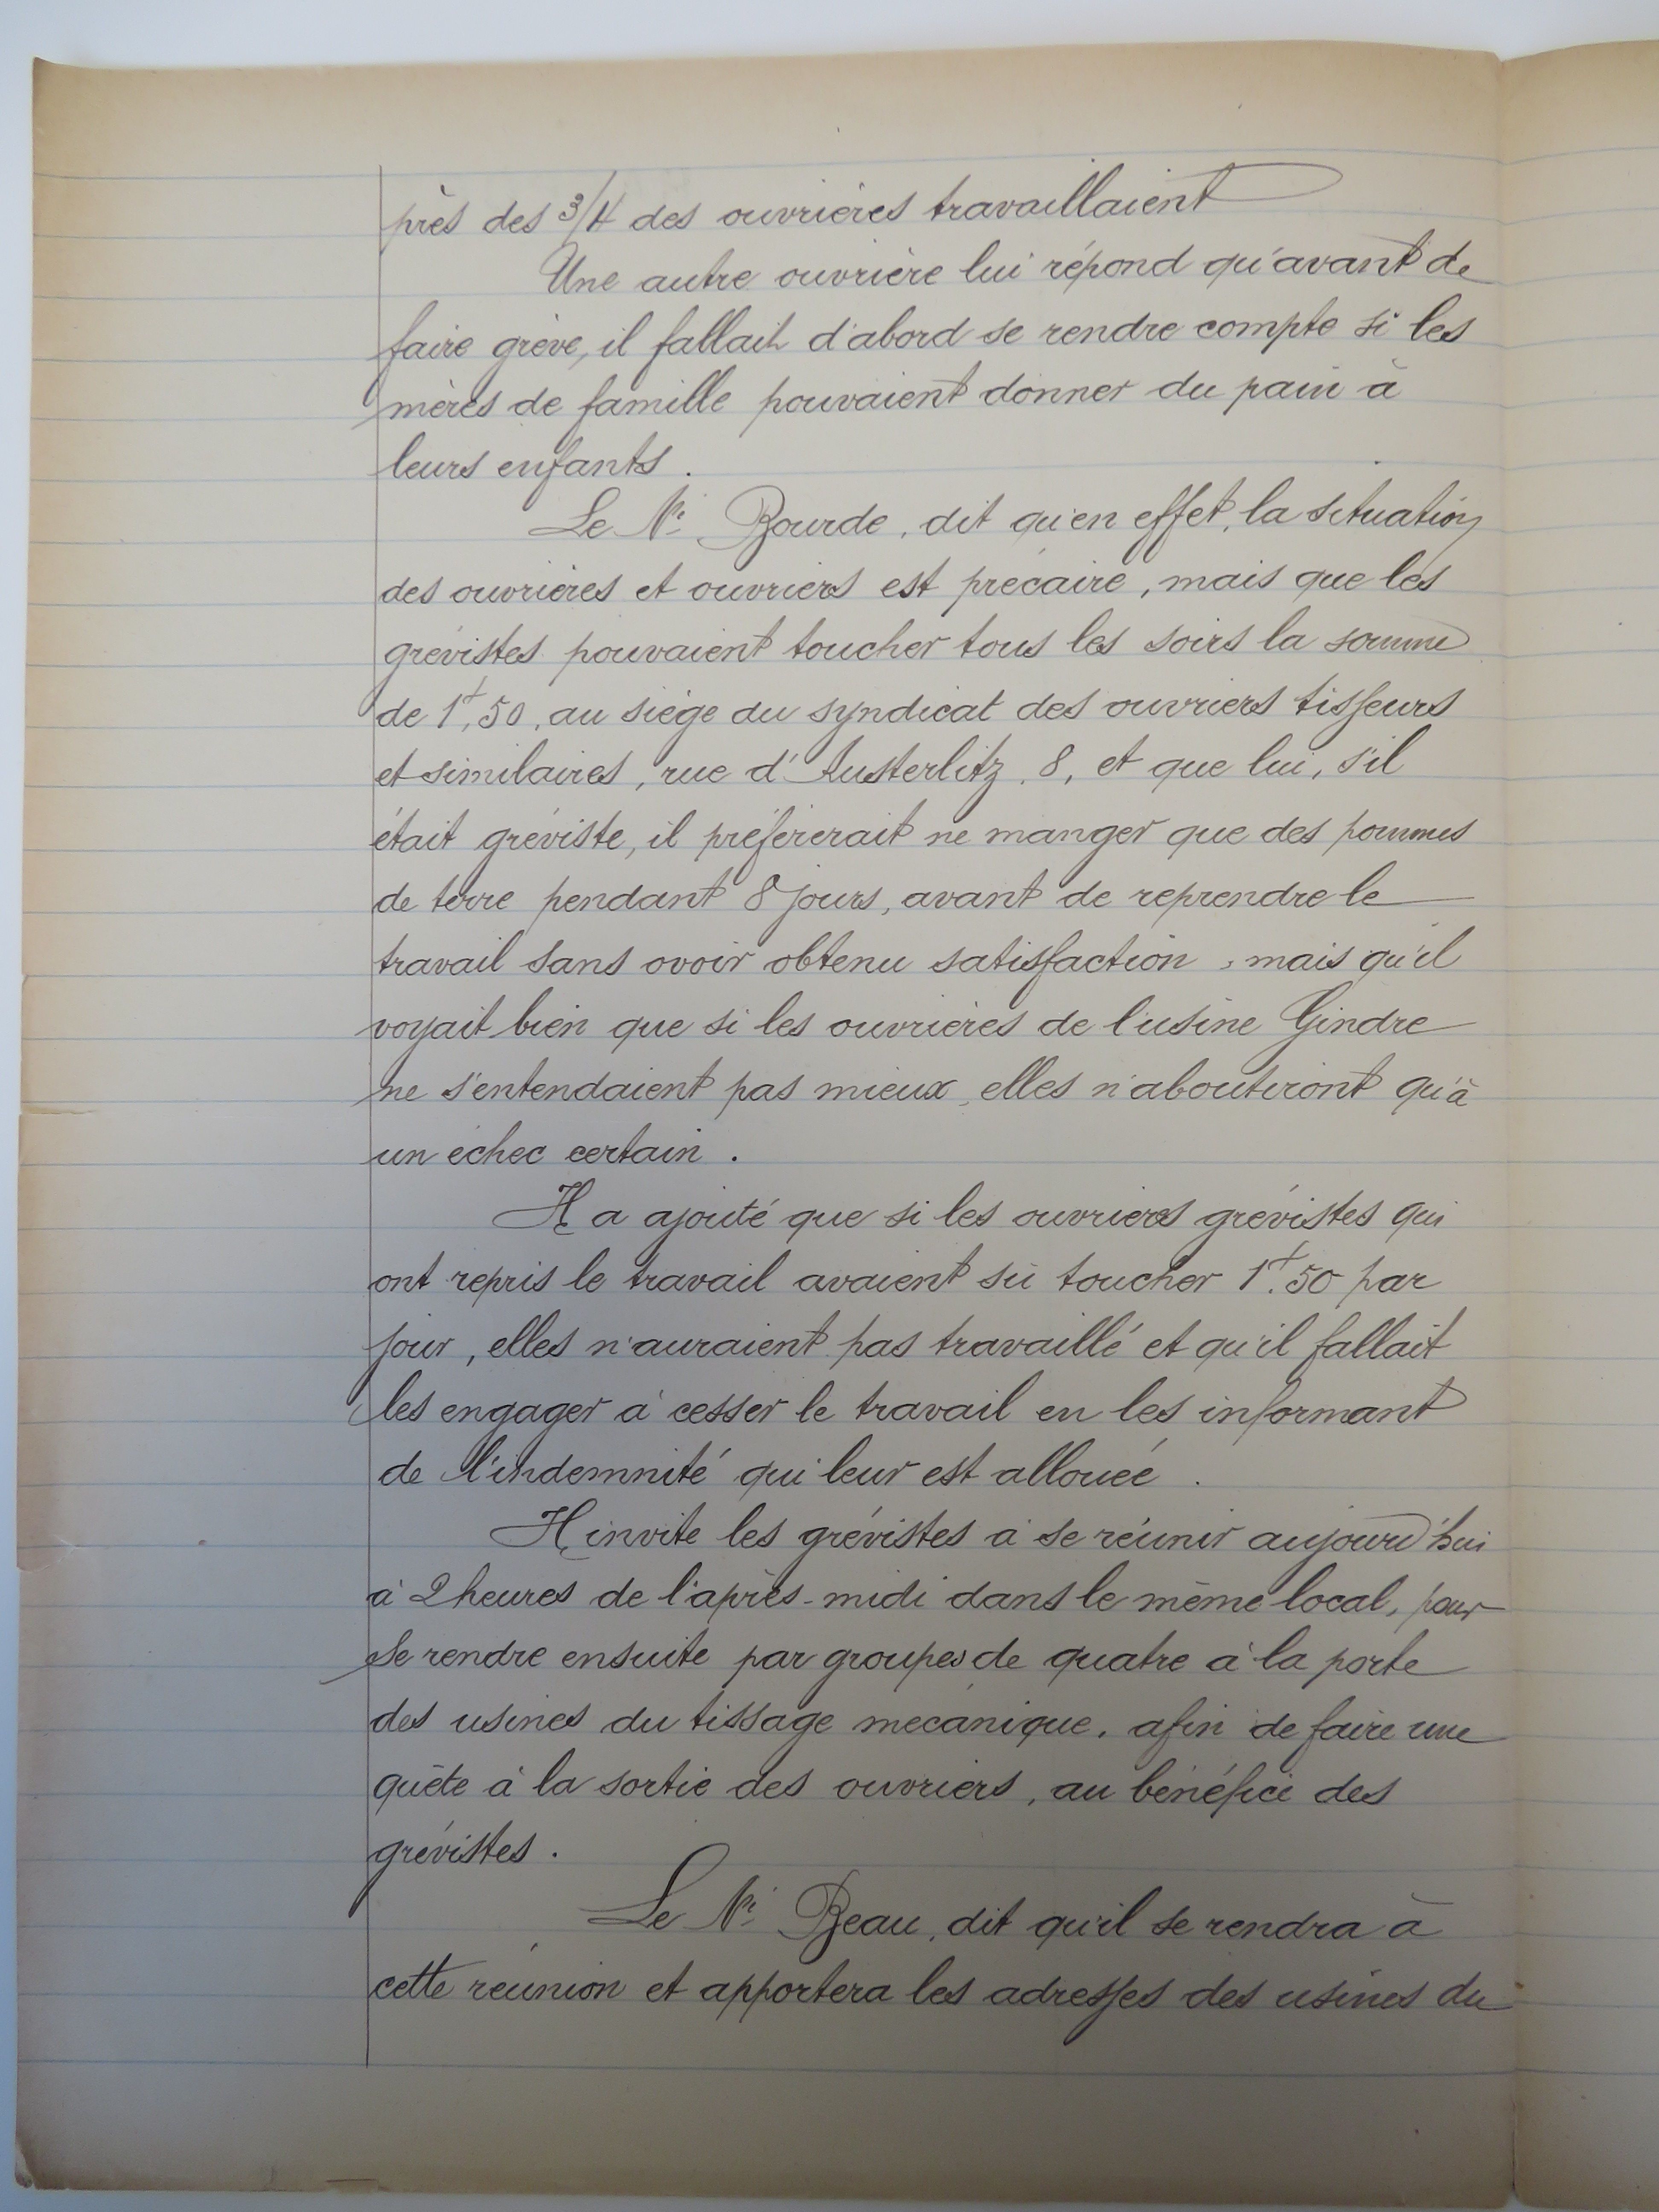 près des 3/4 des ouvrières travaillaient
Une autre ouvrière lui répond qu'avant de
faire grève, il fallait d'abord se rendre compte si les
mères de famille pouvaient donner du pain à
leurs enfants.
Le Né Bourde, dit qu'en effet, la situation
des ouvrières et ouvriers est précaire, mais que les
grévistes pouvaient toucher tous les soirs la somme
de 1f,50, au siège du syndicat des ouvriers tisseurs
et similaires, rue d'Austerlitz, 8, et que lui, s'il
était gréviste, il préférerait ne manger que des pommes
de terre pendant 8 jours, avant de reprendre le
travail sans ovoir obtenu satisfaction, mais qu'il
voyait bien que si les ouvrières de l'usine Gindre
ne s'entendaient pas mieux, elles n'aboutiront qu'à
un échec certain.
Il a ajouté que si les ouvrières grévistes qui
ont repris le travail avaient sû toucher 1f.50 par
jour, elles n'auraient pas travaillé et qu'il fallait
les engager à cesser le travail en les informant
de l'indemnité qui leur est allouée.
Il invite les grévistes à se réunir aujourd'hui
à 2 heures de l'après-midi dans le même local, pour
se rendre ensuite par groupes de quatre à la porte
des usines du tissage mécanique, afin de faire une
quête à la sortie des ouvriers, au bénéfice des
grévistes.
Le Né Beau, dit qu'il se rendra à
cette réunion et apportera les adresses des usines du